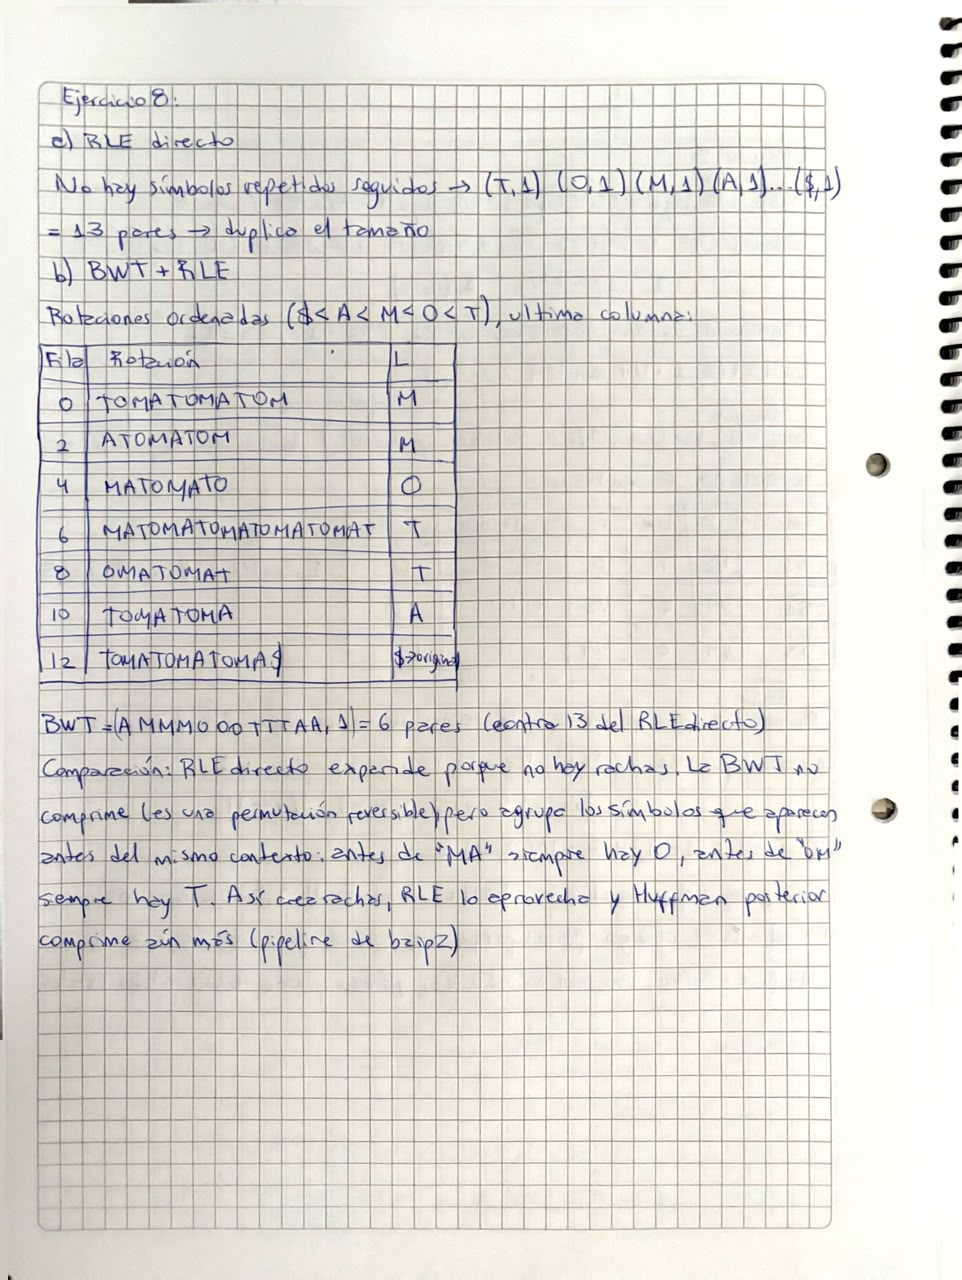 Ejercicio 8:
a) RLE directo
No hay símbolos repetidos seguidos → (T,1) (O,1) (M,1) (A,1)...($,1)
= 13 pares → duplica el tamaño
b) BWT + RLE
Rotaciones ordenadas ($<A<M<O<T), ultima columna:
Fila Rotación L
0 TOMATOMATOM M
2 ATOMATOM M
4 MATOMATO O
6 MATOMATOMATOMATOMAT T
8 OMATOMAT T
10 TOMATOMA A
12 TOMATOMATOMA$ $→original
BWT = (AMMMOOOTTTAA,1) = 6 pares (contra 13 del RLE directo)
Comparación: RLE directo expande porque no hay rachas. La BWT no
comprime (es una permutación reversible) pero agrupa los símbolos que aparecen
antes del mismo contexto: antes de "MA" siempre hay O, antes de "OM"
siempre hay T. Así crea rachas, RLE lo aprovecha y Huffman posterior
comprime aún más (pipeline de bzip2)